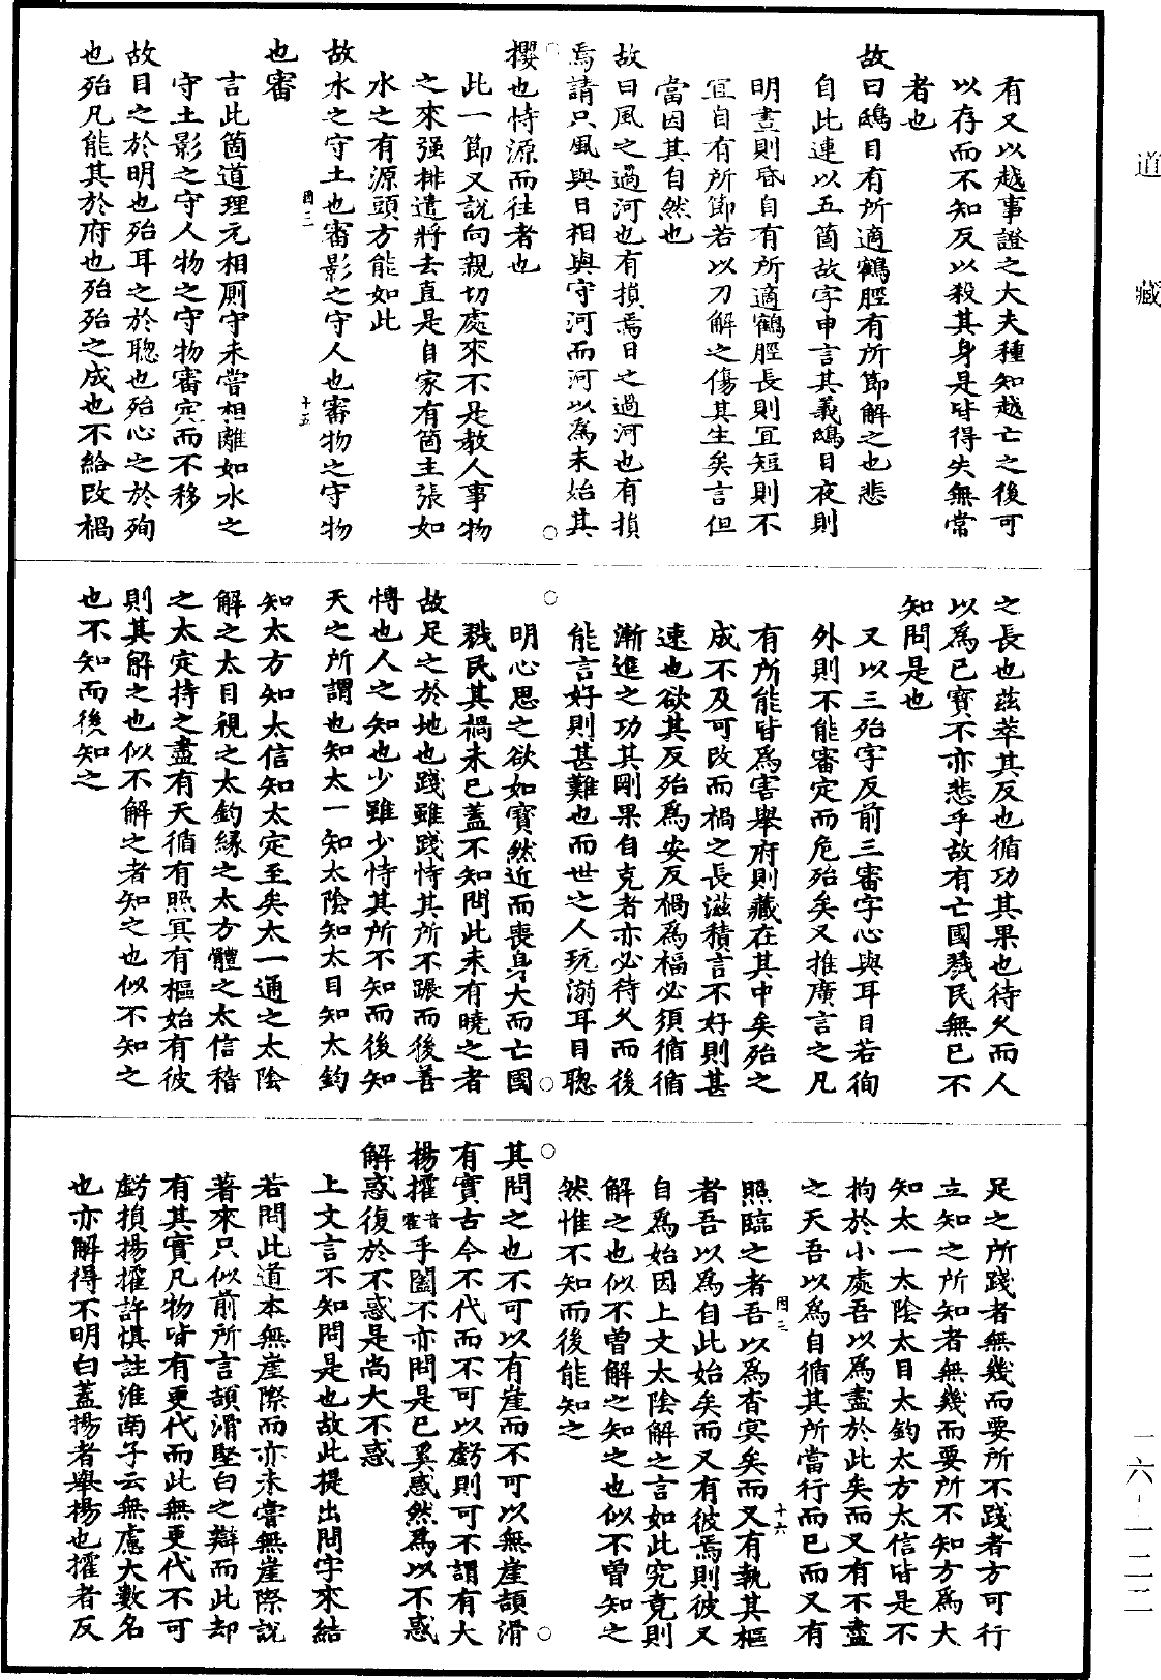 道藏
有又以越事證之大夫種知越亡之後可
以存而不知反以殺其身是皆得失無常
者也
故曰鴟目有所適鶴脛有所節解之也悲
自此連以五箇故字申言其義鴟目夜則
明晝則昏自有所適鶴脛長則宜短則不
宜自有所節若以刀解之傷其生矣言但
當因其自然也
故曰風之過河也有損焉日之過河也有損
焉請只風與日相與守河而河以為未始其
攖也恃源而往者也
此一節又說向親切處來不是教人事物
之來强排遣將去直是自家有箇主張如
水之有源頭方能如此
故水之守土也審影之守人也審物之守物
也審
四二
十五
言此箇道理元相厮守未嘗相離如水之
守土影之守人物之守物審定而不移
故目之於明也殆耳之於聰也殆心之於殉
也殆凡能其於府也殆殆之成也不給改禍
之長也茲萃其反也循功其果也待久而人
以為已寶不亦悲乎故有亡國戮民無已不
知問是也
又以三殆字反前三審字心與耳目若徇
外則不能審定而危殆矣又推廣言之凡
有所能皆為害舉府則藏在其中矣殆之
成不及可改而禍之長滋積言不好則甚
速也欲其反殆為安反禍為福必須循循
漸進之功其剛果自克者亦必待久而後
能言好則甚難也而世之人玩溺耳目聰
明心思之欲如寶然近而喪身大而亡國
戮民其禍未已蓋不知問此未有曉之者
故足之於地也踐雖踐恃其所不蹍而後善
博也人之知也少雖少恃其所不知而後知
天之所謂也知太一知太陰知太目知太鈞
知太方知太信知太定至矣太一通之太陰
解之太目視之太鈞緣之太方體之太信稽
之太定持之盡有天循有照冥有樞始有彼
則其解之也似不解之者知之也似不知之
也不知而後知之
足之所踐者無幾而要所不踐者方可行
立知之所知者無幾而要所不知方為大
知太一太陰太目太鈞太方太信皆是不
拘於小處吾以為盡於此矣而又有不盡
之天吾以為自循其所當行而已而又有
四二
十六
照臨之者吾以為杳冥矣而又有執其樞
者吾以為自此始矣而又有彼焉則彼又
自為始因上文太陰解之言如此究竟則
解之也似不曾解之知之也似不曾知之
然惟不知而後能知之
其問之也不可以有崖而不可以無崖頡滑
有實古今不代而不可以虧則可不謂有大
揚搉音霍乎闔不亦問是已奚惑然為以不惑
解惑復於不惑是尚大不惑
上文言不知問是也故此提出問字來結
若問此道本無崖際而亦未嘗無崖際說
著來只似前所言頡滑堅白之辯而此却
有其實凡物皆有更代而此無更代不可
虧損揚搉許慎註淮南子云無慮大數名
也亦解得不明白蓋揚者舉揚也搉者反
二六-一二二